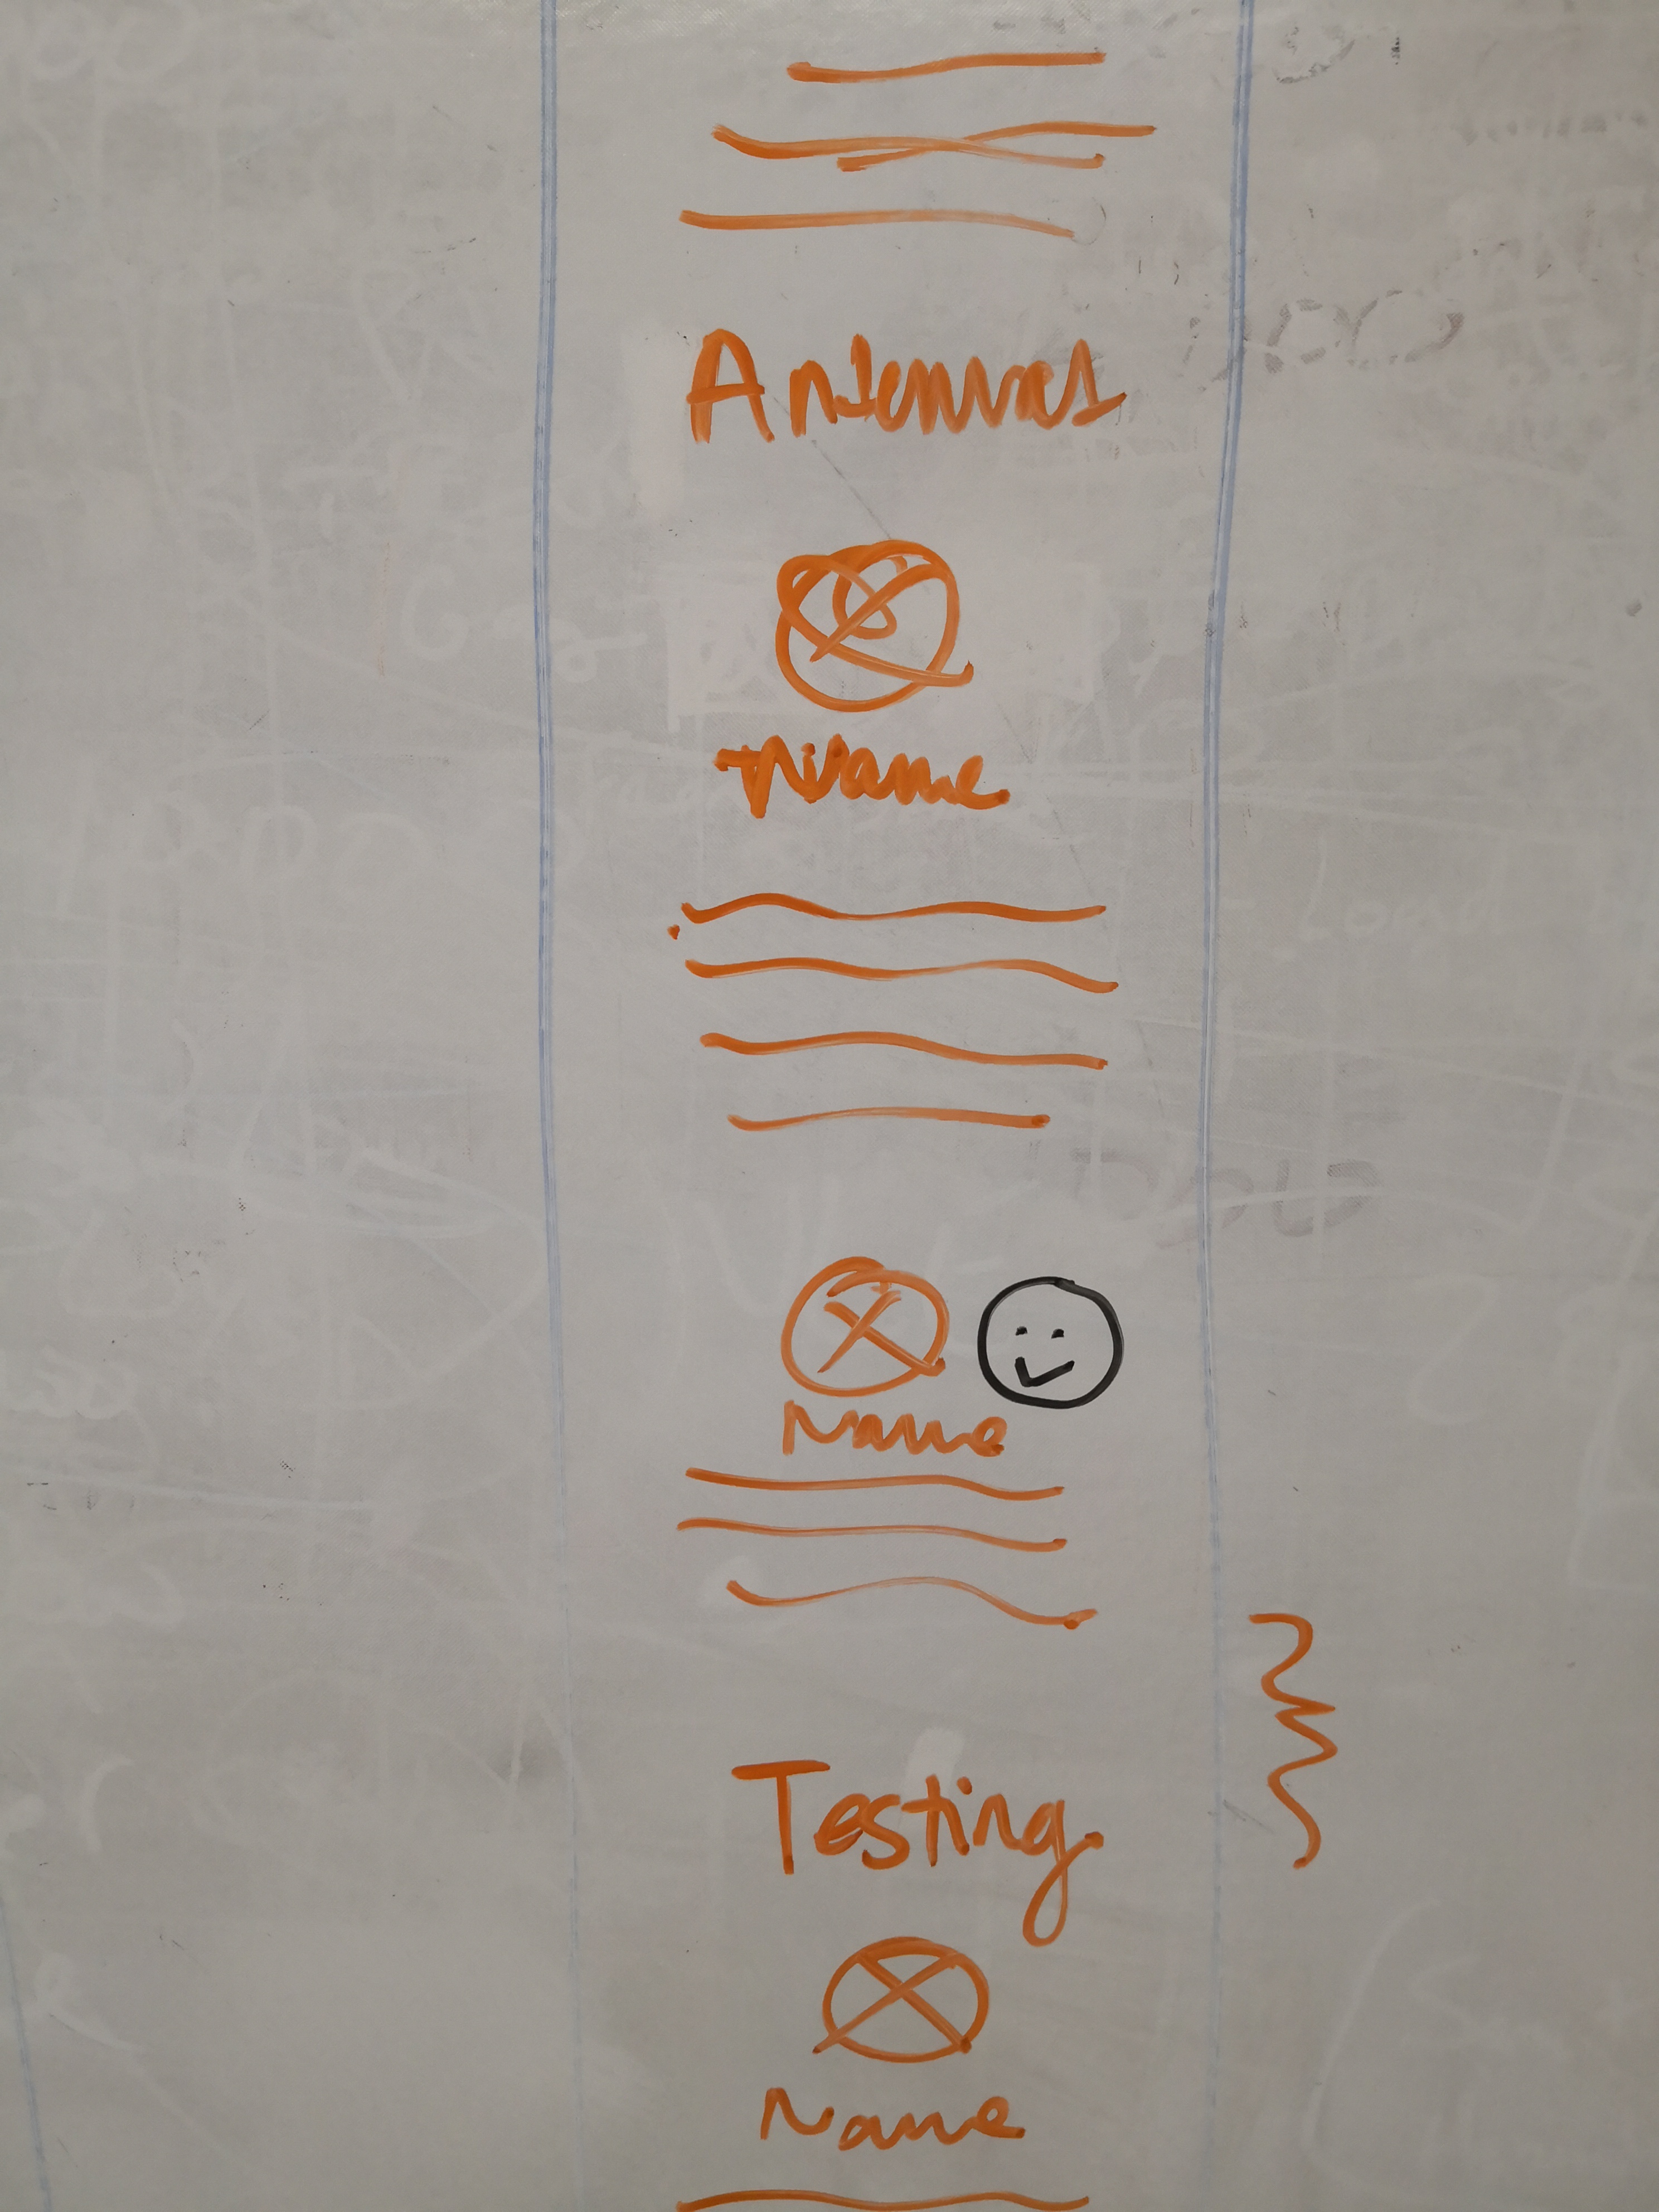 Antennas
Name
Name
Testing
Name